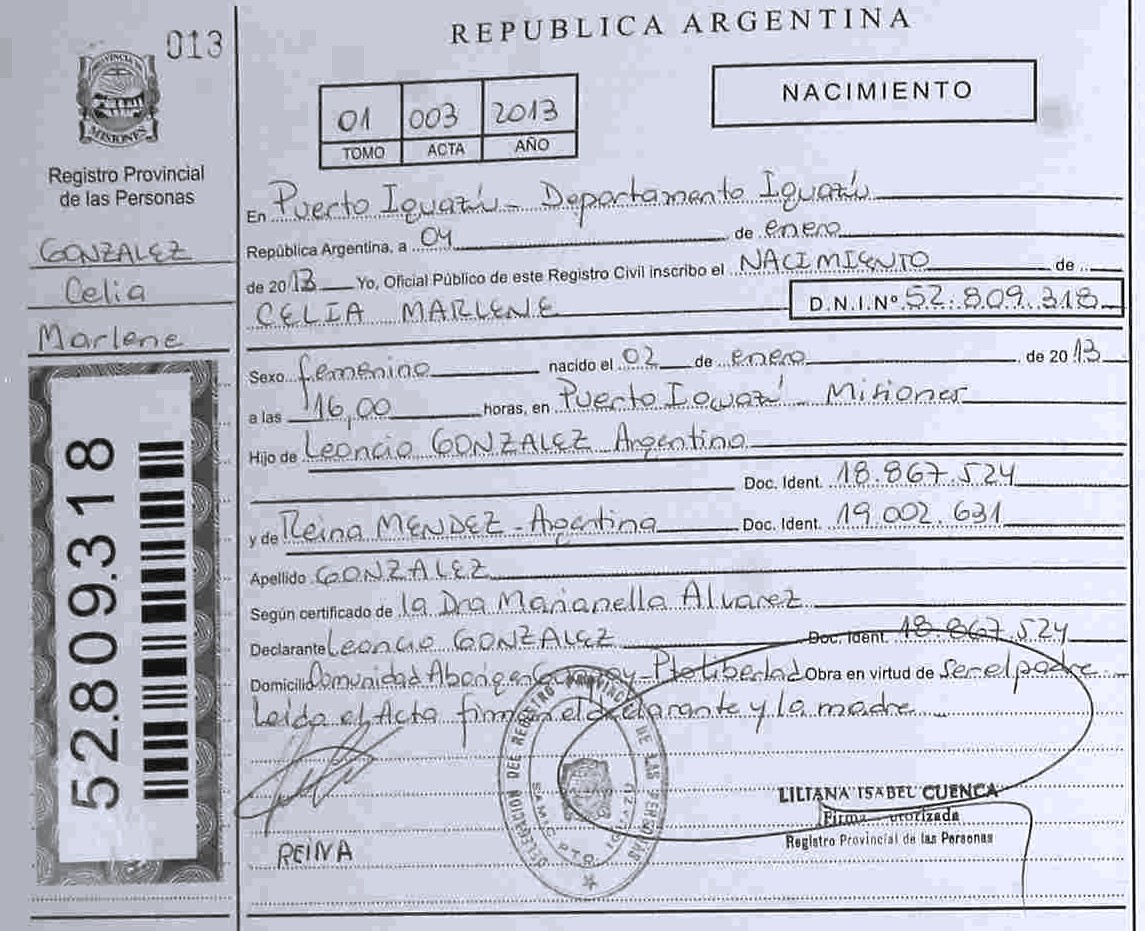 013
REPUBLICA ARGENTINA
PROVINCIA DE
MISIONES
Registro Provincial
de las Personas
01 003 2013
TOMO ACTA AÑO
NACIMIENTO
GONZALEZ
Celia
Marlene
52.809.318
En Puerto Iguazú - Departamento Iguazú
República Argentina, a 04 de enero
de 2013 Yo, Oficial Público de este Registro Civil inscribo el NACIMIENTO de
CELIA MARLENE D.N.I.Nº 52.809.318
Sexo femenino nacido el 02 de enero de 2013
a las 16,00 horas, en Puerto Iguazú Misiones
Hijo de Leoncio GONZALEZ Argentino
Doc. Ident. 18.867.524
y de Reina MENDEZ - Argentina Doc. Ident. 19.002.631
Apellido GONZALEZ
Según certificado de la Dra Marianella Alvarez
Declarante Leoncio GONZALEZ Doc. Ident. 18.867.524
Domicilio Comunidad Aborigen Pto libertad Obra en virtud de ser el padre
Leída el Acta firman el declarante y la madre
REINA
DELEGACION DEL REGISTRO PROVINCIAL DE LAS PERSONAS
SAMIC PTO. IGUAZU
LILIANA ISABEL CUENCA
Firma Autorizada
Registro Provincial de las Personas